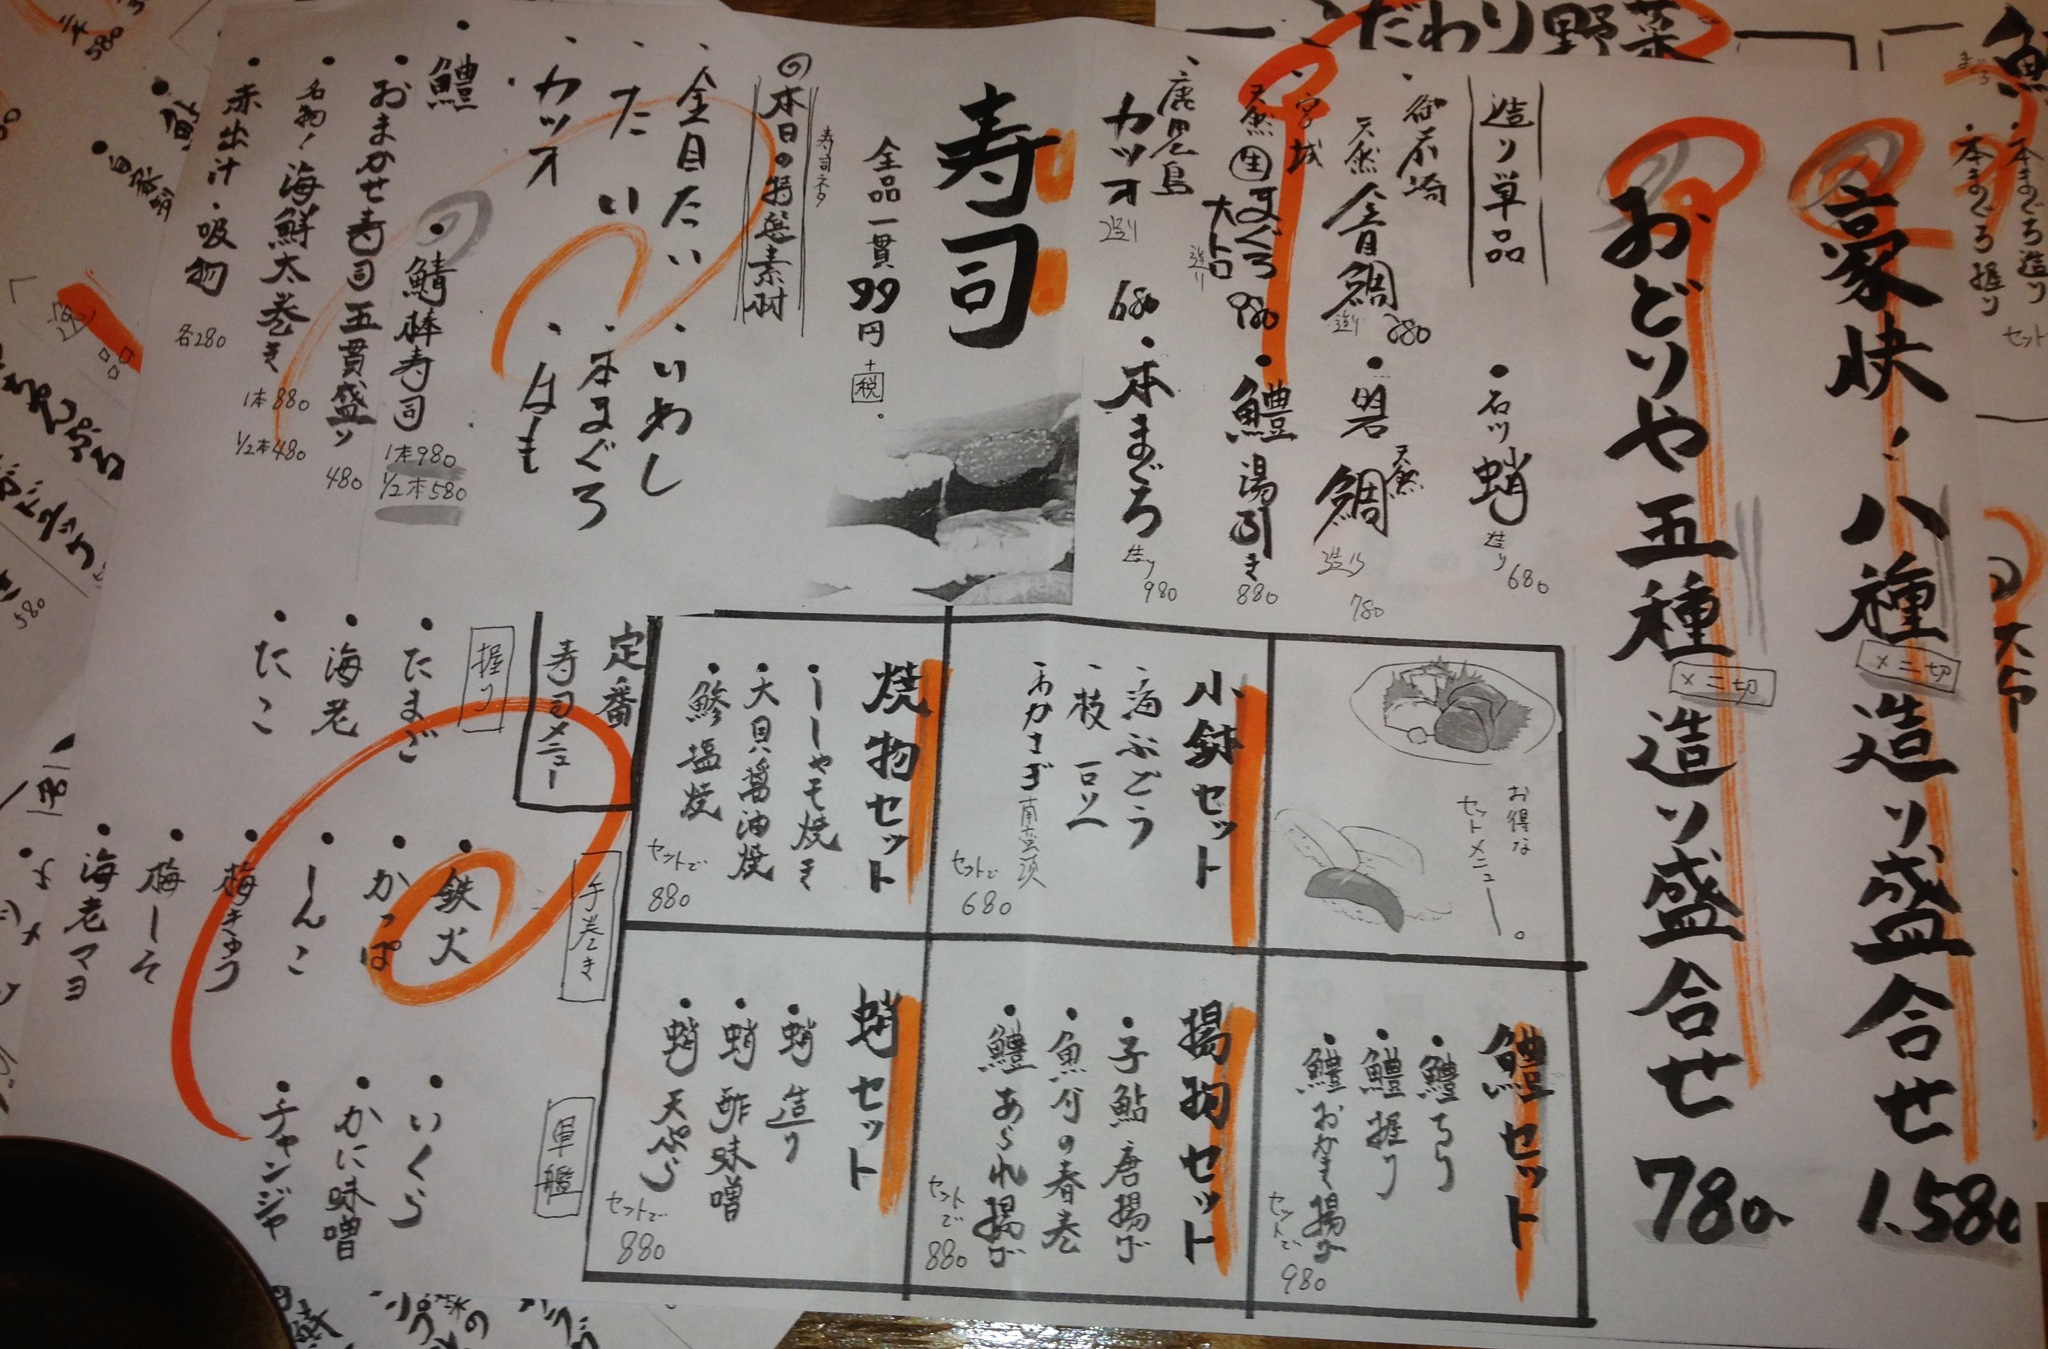 豪快!八種造り盛合せ 1.580
メニ切
おどりや五種造り盛合せ 780
メニ切
造り単品
天然金目鯛 造り
宮城
天然生まぐろ大トロ 造り 980
鹿児島
カツオ 造り 680
石川蛸 造り 680
天然
鯛 造り 780
鱧湯引き 880
本まぐろ 造り 980
寿司
全品一貫99円+税
寿司ネタ
本日の特選素材
金目たい
たい
カツオ
いわし
本まぐろ
はも
鱧
鯖棒寿司 1本980
1/2本580
おまかせ寿司五貫盛り 480
名物!海鮮太巻き 1本880
1/2本480
赤出汁・吸物 各280
お得な
セットメニュー。
小鉢セット
海ぶどう
枝豆
わかさぎ南蛮漬
セットで
680
焼物セット
ししゃも焼き
大貝醤油焼
鯵塩焼
セットで
880
鱧セット
鱧ちり
鱧握り
鱧おかき揚げ
セットで
980
揚物セット
子鮎唐揚げ
魚介の春巻
鱧あられ揚げ
セットで
880
蛸セット
蛸造り
蛸酢味噌
蛸天ぷら
セットで
880
定番
寿司メニュー
握り
たまご
海老
たこ
手巻き
鉄火
かっぱ
しんこ
梅きゅう
梅しそ
海老マヨ
軍艦
いくら
かに味噌
チャンジャ
こだわり野菜
本まぐろ造り
本まぐろ握り
セット
580